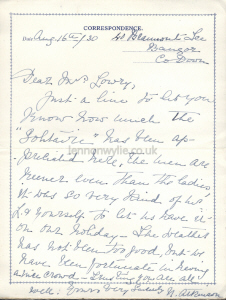 CORRESPONDENCE.
Aug 16th/30
Beaumont
Bangor
Co Down
Dear Mrs Lowry,
Just a line to let you
know how much the
"Solitaire" has been ap-
preciated here, the men are
keener even than the ladies
It was so very kind of Mr
L & yourself to let us have it
on our holiday – The weather
has not been too good, but we
have been fortunate in having
a nice crowd – trusting you are all
well. Yours Very
lennonwylie.co.uk